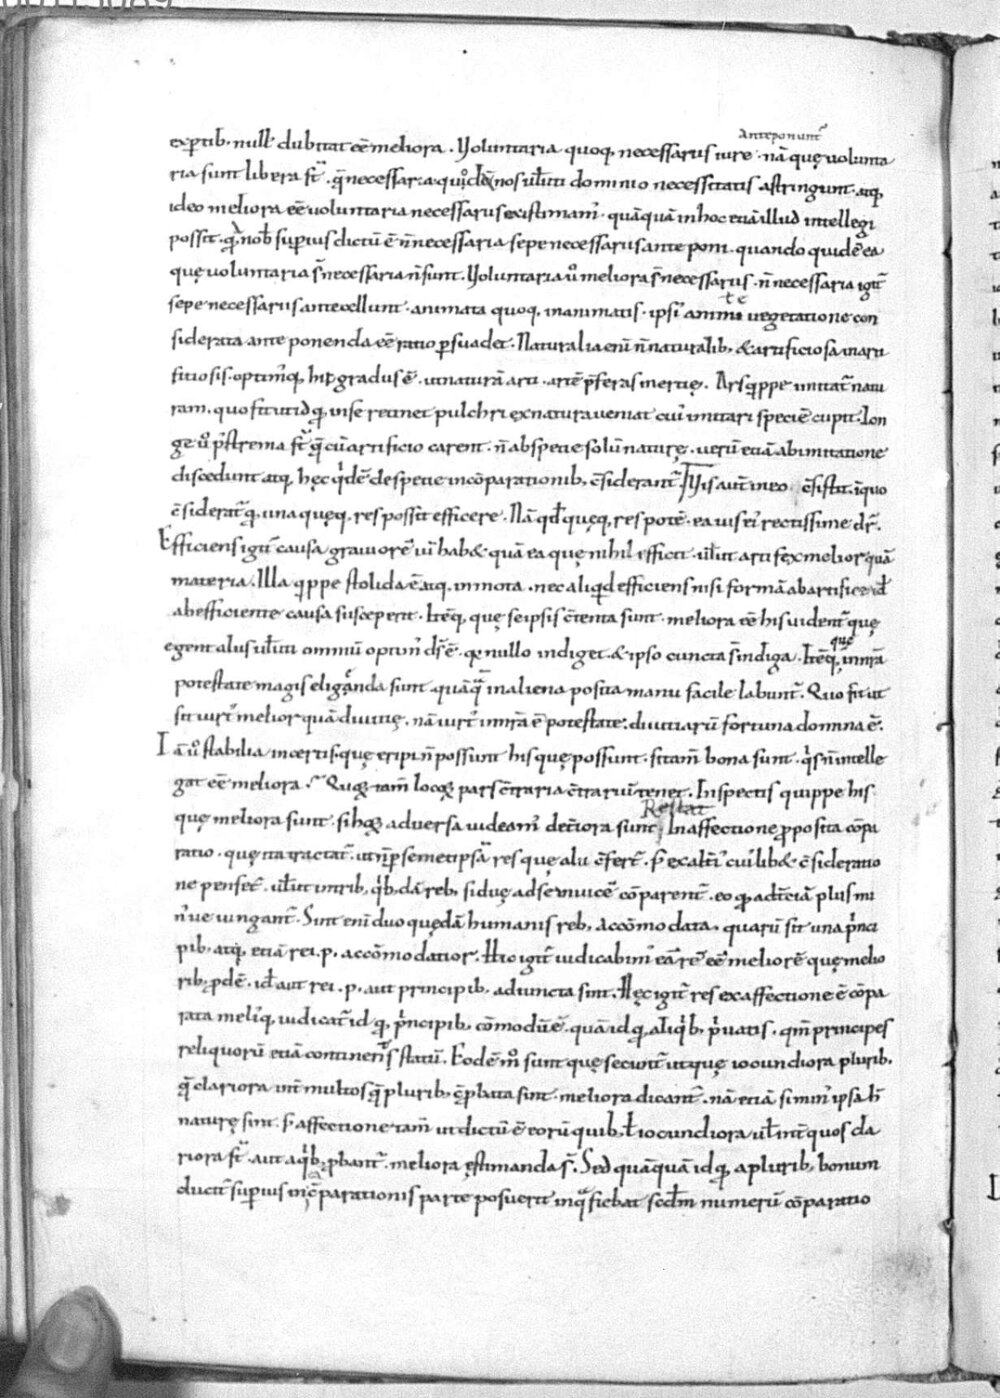 Anteponunt᷑
exptib. null dubitat eē meliora. Voluntaria quoq, necessariis iure. nā quę volunta
ria sunt libera st. q̄ necessaria quidē nos ulut dominio necessitatis astringunt. atq,
ideo meliora eē voluntaria necessariis existimam᾿. quāquā in hoc etiā illud intellegi
possit. qd nob superius dictū ē n̄ necessaria sepe necessariis ante poni. quando quidē ea
quę voluntaria s̄ necessaria n̄ sunt. Voluntaria u° meliora s̄ necessariis. n̄ necessaria igit᷑
sepe necessariis antecellunt. animata quoq, inanimatis. ipsi᾿ anime vegetatione con
siderata ante ponenda eē ratio psuadet. Naturalia eni n̄ naturalib, & artificiosa inarti
ficiosis. optimq, hic gradus ē. ut naturā arti. artē pferas inertię. Ars qppe imitat᷑ natu
ram. quo fit ut id qd in se retinet pulchri ex natura veniat cui᾿ imitari speciē cupit. Lon
ge u° postrema st q̄ cū artificio carent. n̄ ab specie solū naturę. verū etiā ab imitatione
discedunt atq, hęc qdē de specie in cōparationib, c̄siderant᷑. His aut in eo c̄sistit. in quo
c̄siderat᷑ qd unaquęq, res possit efficere. Nā qd quęq, res potē. ea vis ei᾿ rectissime dr̄.
Efficiens igit᷑ causa graviorē vim hab& quā ea que nihil efficit. ulut artifex melior quā
materia. Illa qppe stolida ē atq, inmota. nec aliqd efficiens nisi formā ab artifice id
ab efficiente causa susceperit. Itēq, quę se ipsis c̄tenta sunt. meliora eē his vident᷑ quę
que
egent aliis ulut omniū optim᾿ ds ē. qui nullo indiget & ipso cuncta s̄ indiga. Itēq, in nr̄a
potestate magis eligenda sunt quāq in aliena posita manu facile labunt᷑. Quo fit ut
sit virt᾿ melior quā divitię. nā virt᾿ in nr̄a ē potestate. divitiarū fortuna domina ē.
Iā u° stabilia incertis. quę eripi n̄ possunt his quę possunt. si tam̄ bona sunt. qs n̄ intelle
gat eē meliora. Quoq, tam̄ locoꝝ pars c̄traria c̄trariū tenet. Inspectis quippe his
Restat
quę meliora sunt. si hisq, adversa videam᾿ deteriora sunt. In affectione pposita cōpa
ratio. quę ita tractat᷑. ut n̄ p semet ipsā res que alii c̄fert᷑. s ex alteri᾿ cui᾿ lib& c̄sideratio
ne penset᷑. ulut in trib, qb, dā reb, si duę ad se invicē cōparent᷑. eo qd ad tertiā plus mi
n᾿ ve iungant᷑. Sint eni duo quędā humanis reb, accōmodata. quarū sit una princi
pib, atq, etiā rei. p. accōmodatior. Hic igit᷑ iudicabim᾿ eā rē eē meliorē quę melio
rib, pdē. id aut rei. p. aut principib, adiuncta sint. Hęc igit᷑ res ex affectione ē cōpa
rata meliusq, iudicat᷑ id qd principib, cōmodū ē. quā id qd aliqb, privatis. qm principes
reliquorū etiā continent statū. Eodē mo sunt que secunt᷑ ut quę iocundiora plurib,
q̄ clariora int multos q̄ plurib, cprobata sint. meliora dicant᷑. nā etiā si min᾿ ipsa h̄
naturę sint. s affectione tam̄ ut dictū ē eorū quib, t iocundiora ul int quos cla
riora st. aut a qb, pbant᷑. meliora ęstimanda s̄. Sed quāquā id qd a plurib, bonum
ducit᷑ superius in cparationis parte posuerit in q fiebat scdm numerū cōparatio